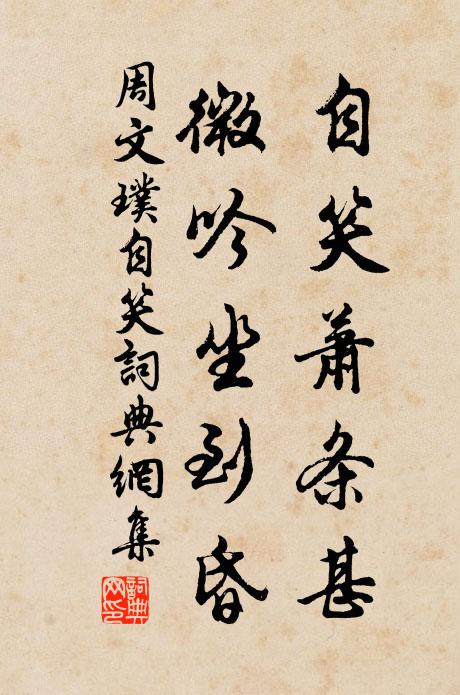 自笑蕭条甚
微吟坐到昏
周文璞自笑詞典網集
詞典網印